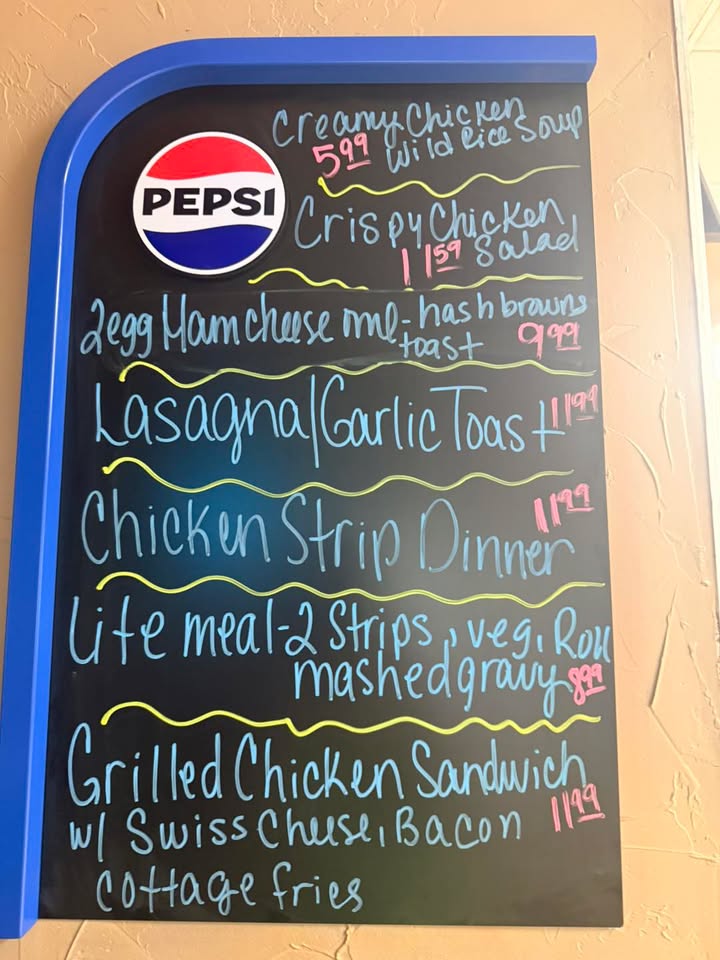 Creamy Chicken
5.99 Wild Rice Soup
PEPSI
Crispy Chicken
11.59 Salad
2egg Ham cheese oml - hash browns
toast 9.99
Lasagna/Garlic Toast 11.99
Chicken Strip Dinner 11.99
Lite meal - 2 Strips, veg, Roll
mashed gravy 8.99
Grilled Chicken Sandwich
w/ Swiss Cheese, Bacon 11.99
cottage fries